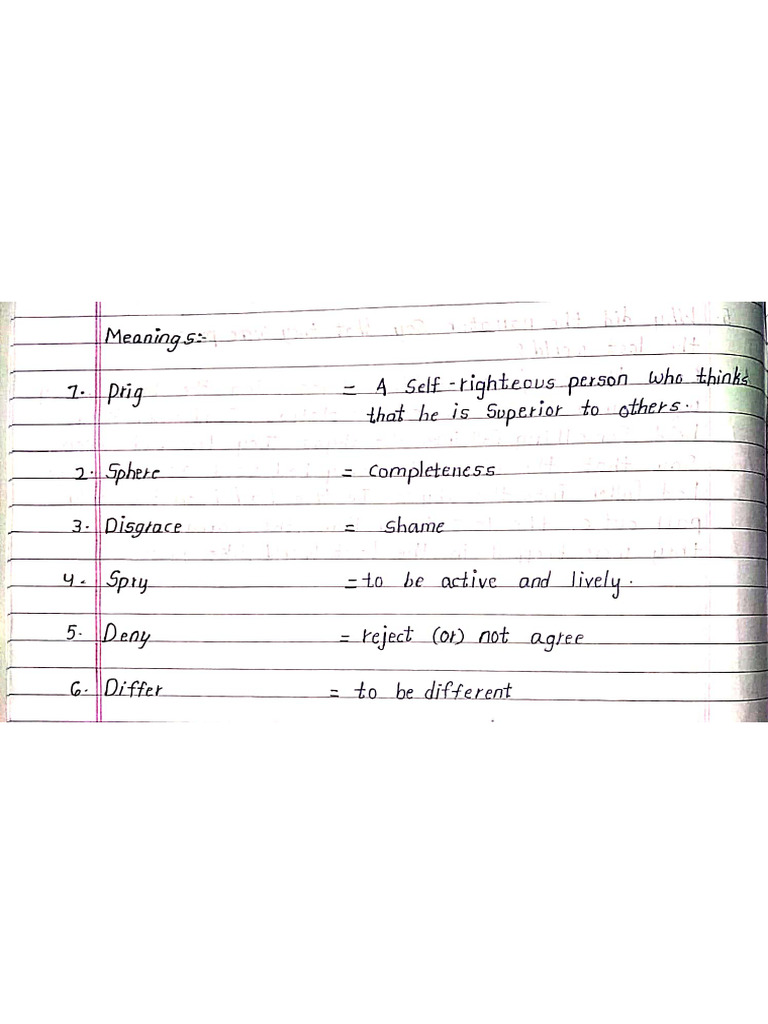 Meanings:-
1. Prig = A Self-righteous person who thinks
that he is Superior to others.
2. Sphere = completeness
3. Disgrace = shame
4. Spry = to be active and lively.
5. Deny = reject (or) not agree
6. Differ = to be different